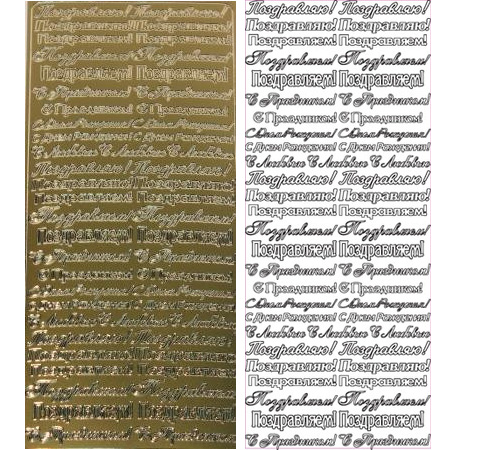 Поздравляю! Поздравляю!
Поздравляю! Поздравляю!
Поздравляем! Поздравляем!
Поздравляем! Поздравляем!
Поздравляем! Поздравляем!
С Праздником! С Праздником!
С Праздником! С Праздником!
С Днем Рождения! С Днем Рождения!
С Днем Рождения! С Днем Рождения!
С Любовью С Любовью С Любовью
Поздравляю! Поздравляю!
Поздравляю! Поздравляю!
Поздравляем! Поздравляем!
Поздравляем! Поздравляем!
Поздравляем! Поздравляем!
С Праздником! С Праздником!
С Праздником! С Праздником!
С Днем Рождения! С Днем Рождения!
С Днем Рождения! С Днем Рождения!
С Любовью С Любовью С Любовью
Поздравляю! Поздравляю!
Поздравляю! Поздравляю!
Поздравляем! Поздравляем!
Поздравляем! Поздравляем!
Поздравляем! Поздравляем!
С Праздником! С Праздником!
Поздравляю! Поздравляю!
Поздравляю! Поздравляю!
Поздравляем! Поздравляем!
Поздравляем! Поздравляем!
Поздравляем! Поздравляем!
С Праздником! С Праздником!
С Праздником! С Праздником!
С Днем Рождения! С Днем Рождения!
С Днем Рождения! С Днем Рождения!
С Любовью С Любовью С Любовью
Поздравляю! Поздравляю!
Поздравляю! Поздравляю!
Поздравляем! Поздравляем!
Поздравляем! Поздравляем!
Поздравляем! Поздравляем!
С Праздником! С Праздником!
С Праздником! С Праздником!
С Днем Рождения! С Днем Рождения!
С Днем Рождения! С Днем Рождения!
С Любовью С Любовью С Любовью
Поздравляю! Поздравляю!
Поздравляю! Поздравляю!
Поздравляем! Поздравляем!
Поздравляем! Поздравляем!
Поздравляем! Поздравляем!
С Праздником! С Праздником!